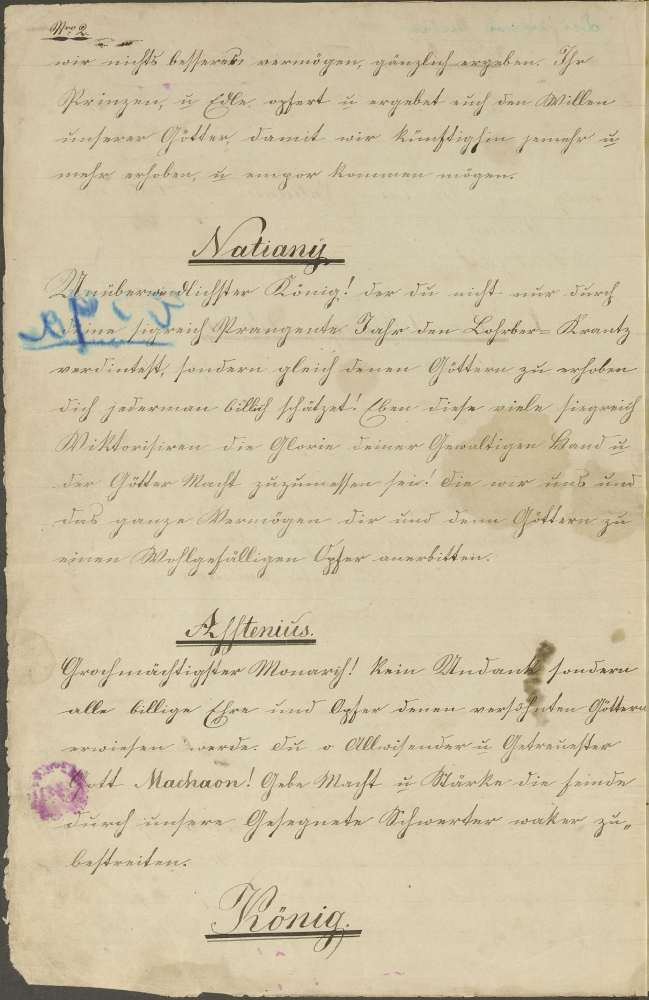 Nro 2.
wir nichts besseres vermögen, gänzlich ergeben. Ihr
Prinzen, u Edle, opfert u ergebet euch den Willen
unserer Götter, damit wir künftighin jemehr u
mehr erhoben, u empor kommen mögen.
Natiany
Unüberwindlichster König! der du nicht nur durch
deine sigreich Prangente Jahr den Lohrber= Krantz
verdintest, sondern gleich denen Göttern zu erhoben
dich jederman billich schätzet! Eben diese viele siegreich
Wiktorisiren die Glorie deiner Gewaltigen Hand u
der Götter Macht zuzumessen sei! die wir uns und
das ganze Vermögen dir und denn Göttern zu
einen Wohlgefälligen Opfer anerbitten.
Asstenius.
Grochmächtigster Monarich! kein Undank sondern
alle billige Ehre und Opfer denen versöhnten Göttern
erwiesen werde. du o Allwisender u Getreuester
Gott Machaon! Gebe Macht u Stärke die feinde
durch unsere Gesegnete Schwerter waker zu„
bestreiten.
König.